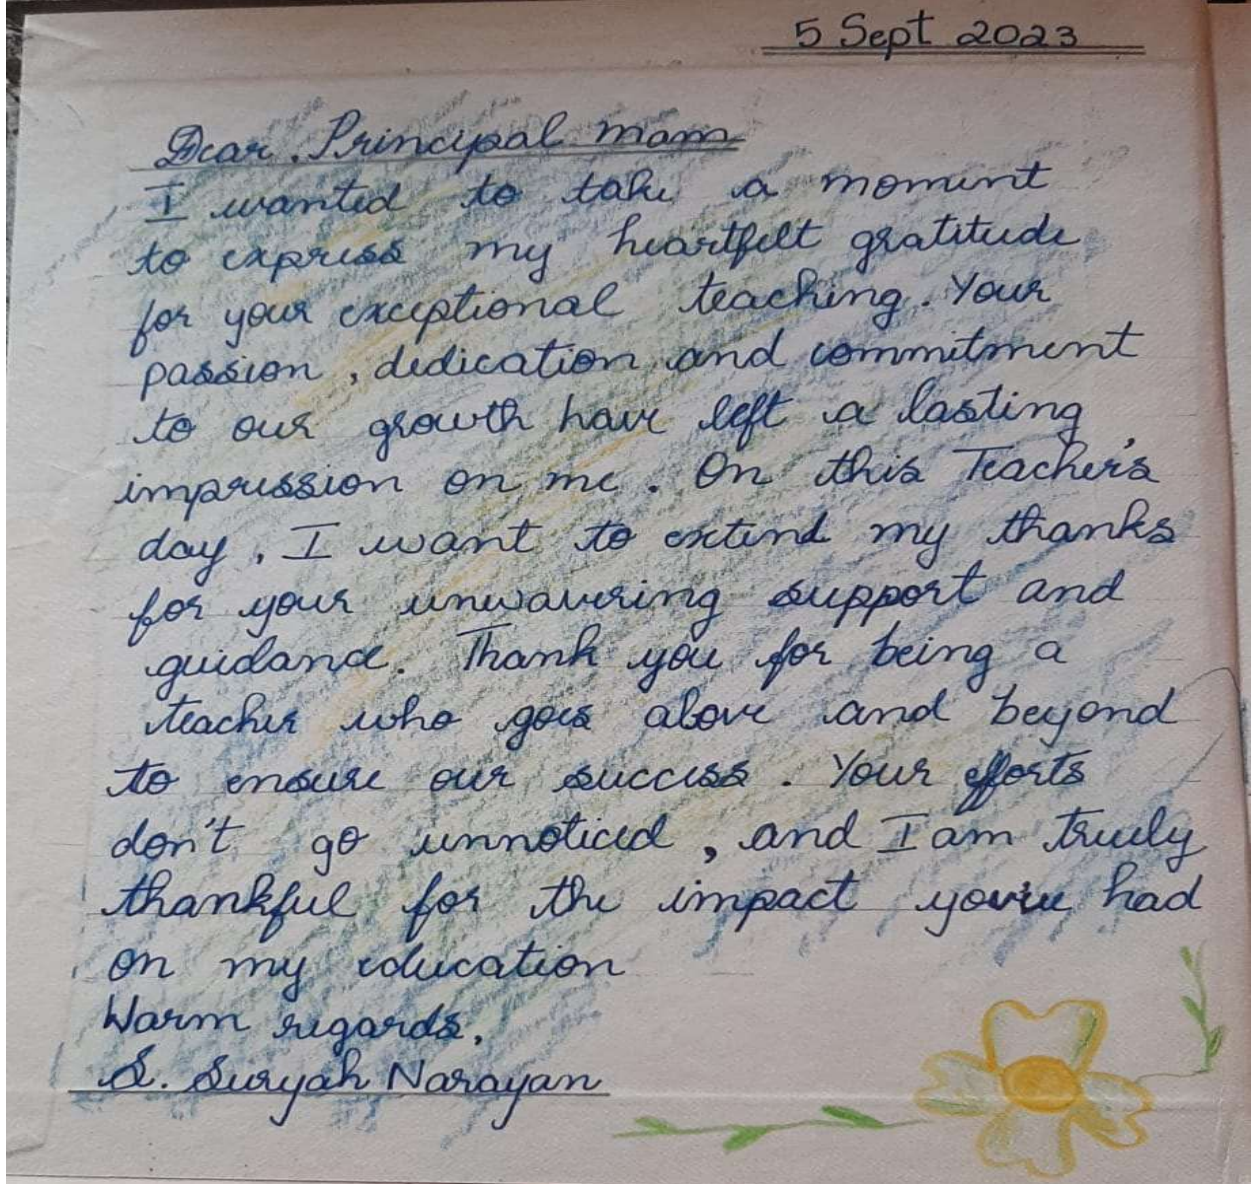 5 Sept 2023
Dear. Principal mam
I wanted to take a moment
to express my heartfelt gratitude
for your exceptional teaching. Your
passion, dedication and commitment
to our growth have left a lasting
impression on me. On this Teacher's
day, I want to extend my thanks
for your unwavering support and
guidance. Thank you for being a
teacher who goes above and beyond
to ensure our success. Your efforts
don't go unnoticed, and I am truely
thankful for the impact you've had
on my education
Warm regards,
S. Suryah Narayan